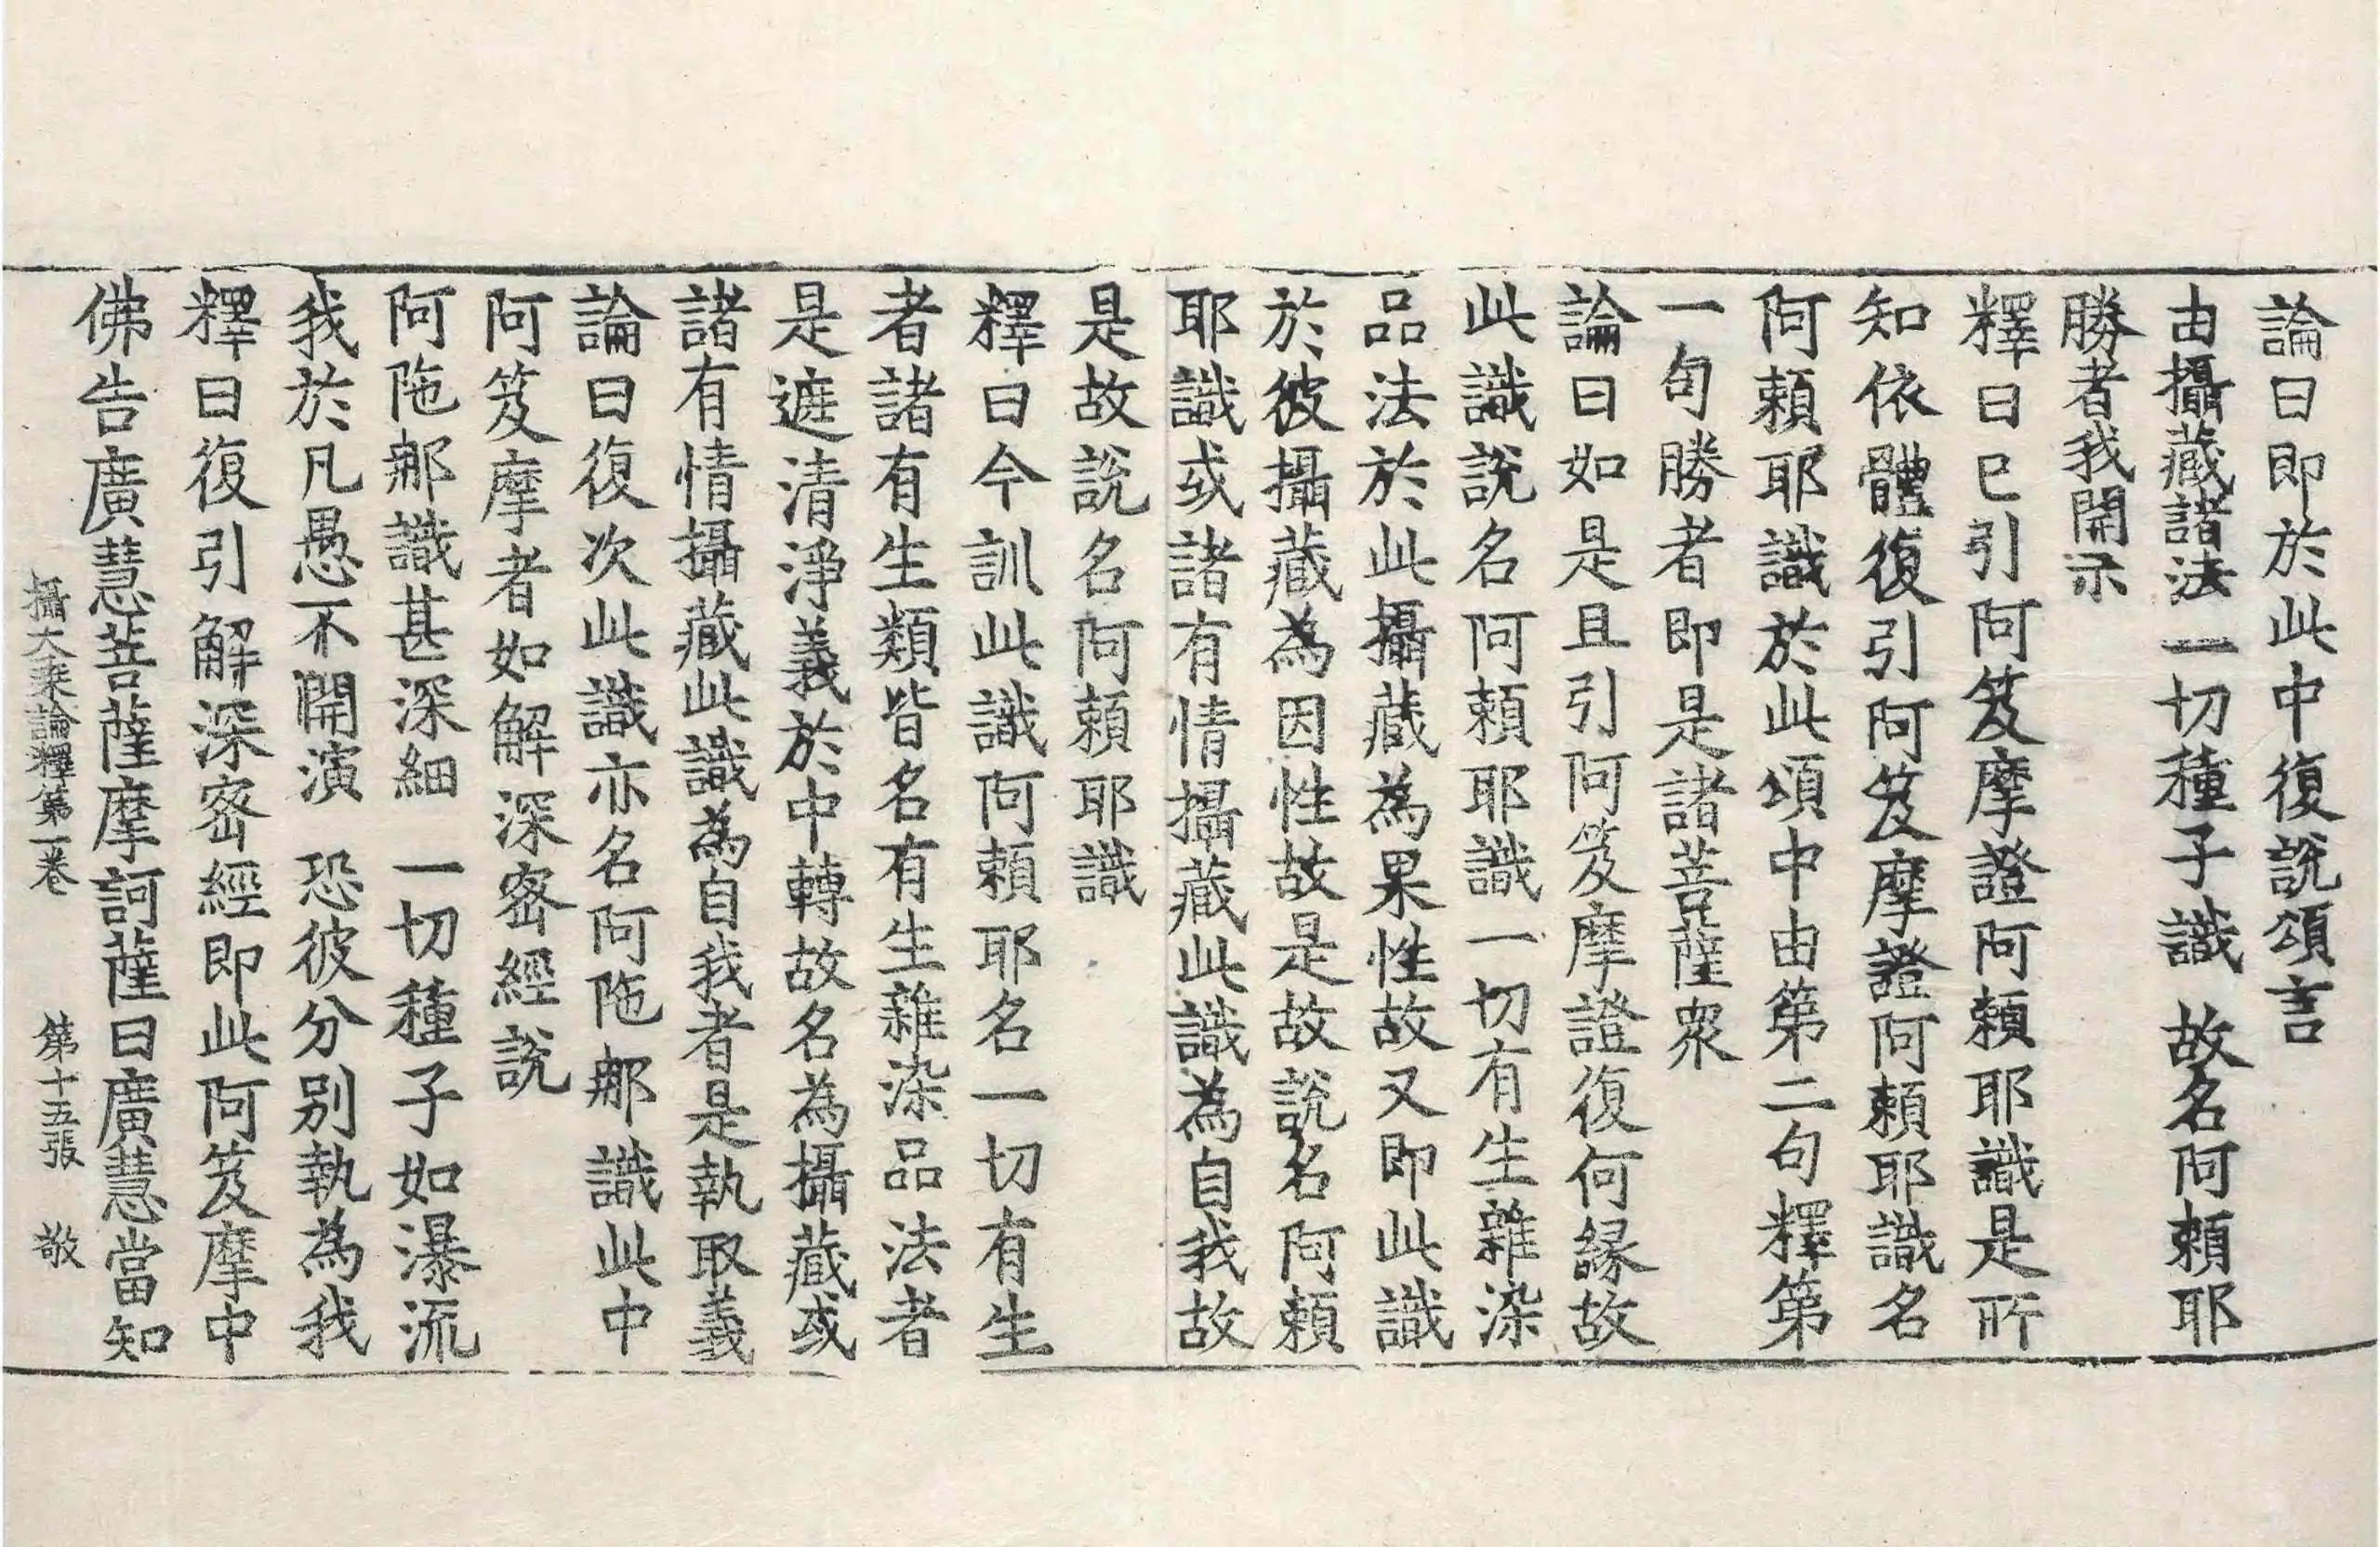 論曰即於此中復說頌言
由攝藏諸法一切種子識 故名阿賴耶
勝者我開示
釋曰已引阿笈摩證阿賴耶識是所
知依體復引阿笈摩證阿賴耶識名
阿賴耶識於此頌中由第二句釋第
一句勝者即是諸菩薩衆
論曰如是且引阿笈摩證復何緣故
此識說名阿賴耶識一切有生雜染
品法於此攝藏為果性故又即此識
於彼攝藏為因性故是故說名阿賴
耶識或諸有情攝藏此識為自我故
是故說名阿賴耶識
釋曰今訓此識阿賴耶名一切有生
者諸有生類皆名有生雜染品法者
是遮清淨義於中轉故名為攝藏或
諸有情攝藏此識為自我者是執取義
論曰復次此識亦名阿陁那識此中
阿笈摩者如解深密經說
阿陁那識甚深細 一切種子如瀑流
我於凡愚不開演 恐彼分別執為我
釋曰復引解深密經即此阿笈摩中
佛告廣慧菩薩摩訶薩曰廣慧當知
攝大乘論釋第一卷 第十五張 敬